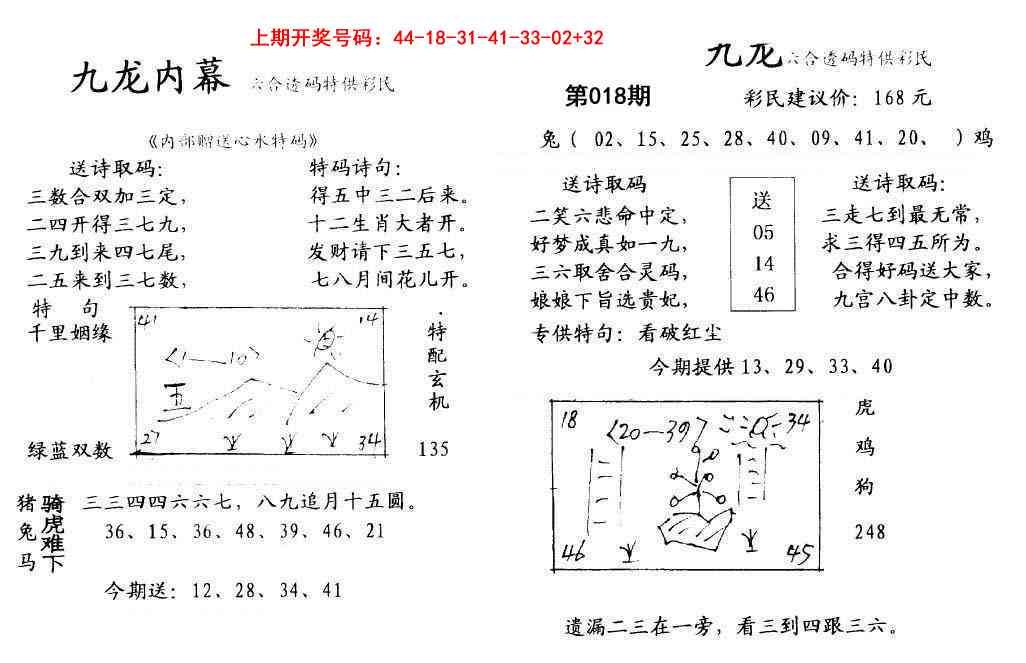 上期开奖号码：44-18-31-41-33-02+32
九龙内幕 六合透码特供彩民
《内部赠送心水特码》
送诗取码：
三数合双加三定，
二四开得三七九，
三九到来四七尾，
二五来到三七数，
特码诗句：
得五中三二后来。
十二生肖大者开。
发财请下三五七，
七八月间花儿开。
特 句
千里姻缘
绿蓝双数
41
14
<1—10>
五
27
34
·特配玄机
135
猪兔马
骑虎难下
三三四四六六七，八九追月十五圆。
36、15、36、48、39、46、21
今期送：12、28、34、41
九龙六合透码特供彩民
第018期
彩民建议价：168元
兔（ 02、15、25、28、40、09、41、20、 ）鸡
送诗取码
二笑六悲命中定，
好梦成真如一九，
三六取舍合灵码，
娘娘下旨选贵妃，
送
05
14
46
送诗取码：
三走七到最无常，
求三得四五所为。
合得好码送大家，
九宫八卦定中数。
专供特句：看破红尘
今期提供13、29、33、40
18
<20—39>
34
46
45
虎
鸡
狗
248
遗漏二三在一旁，看三到四跟三六。